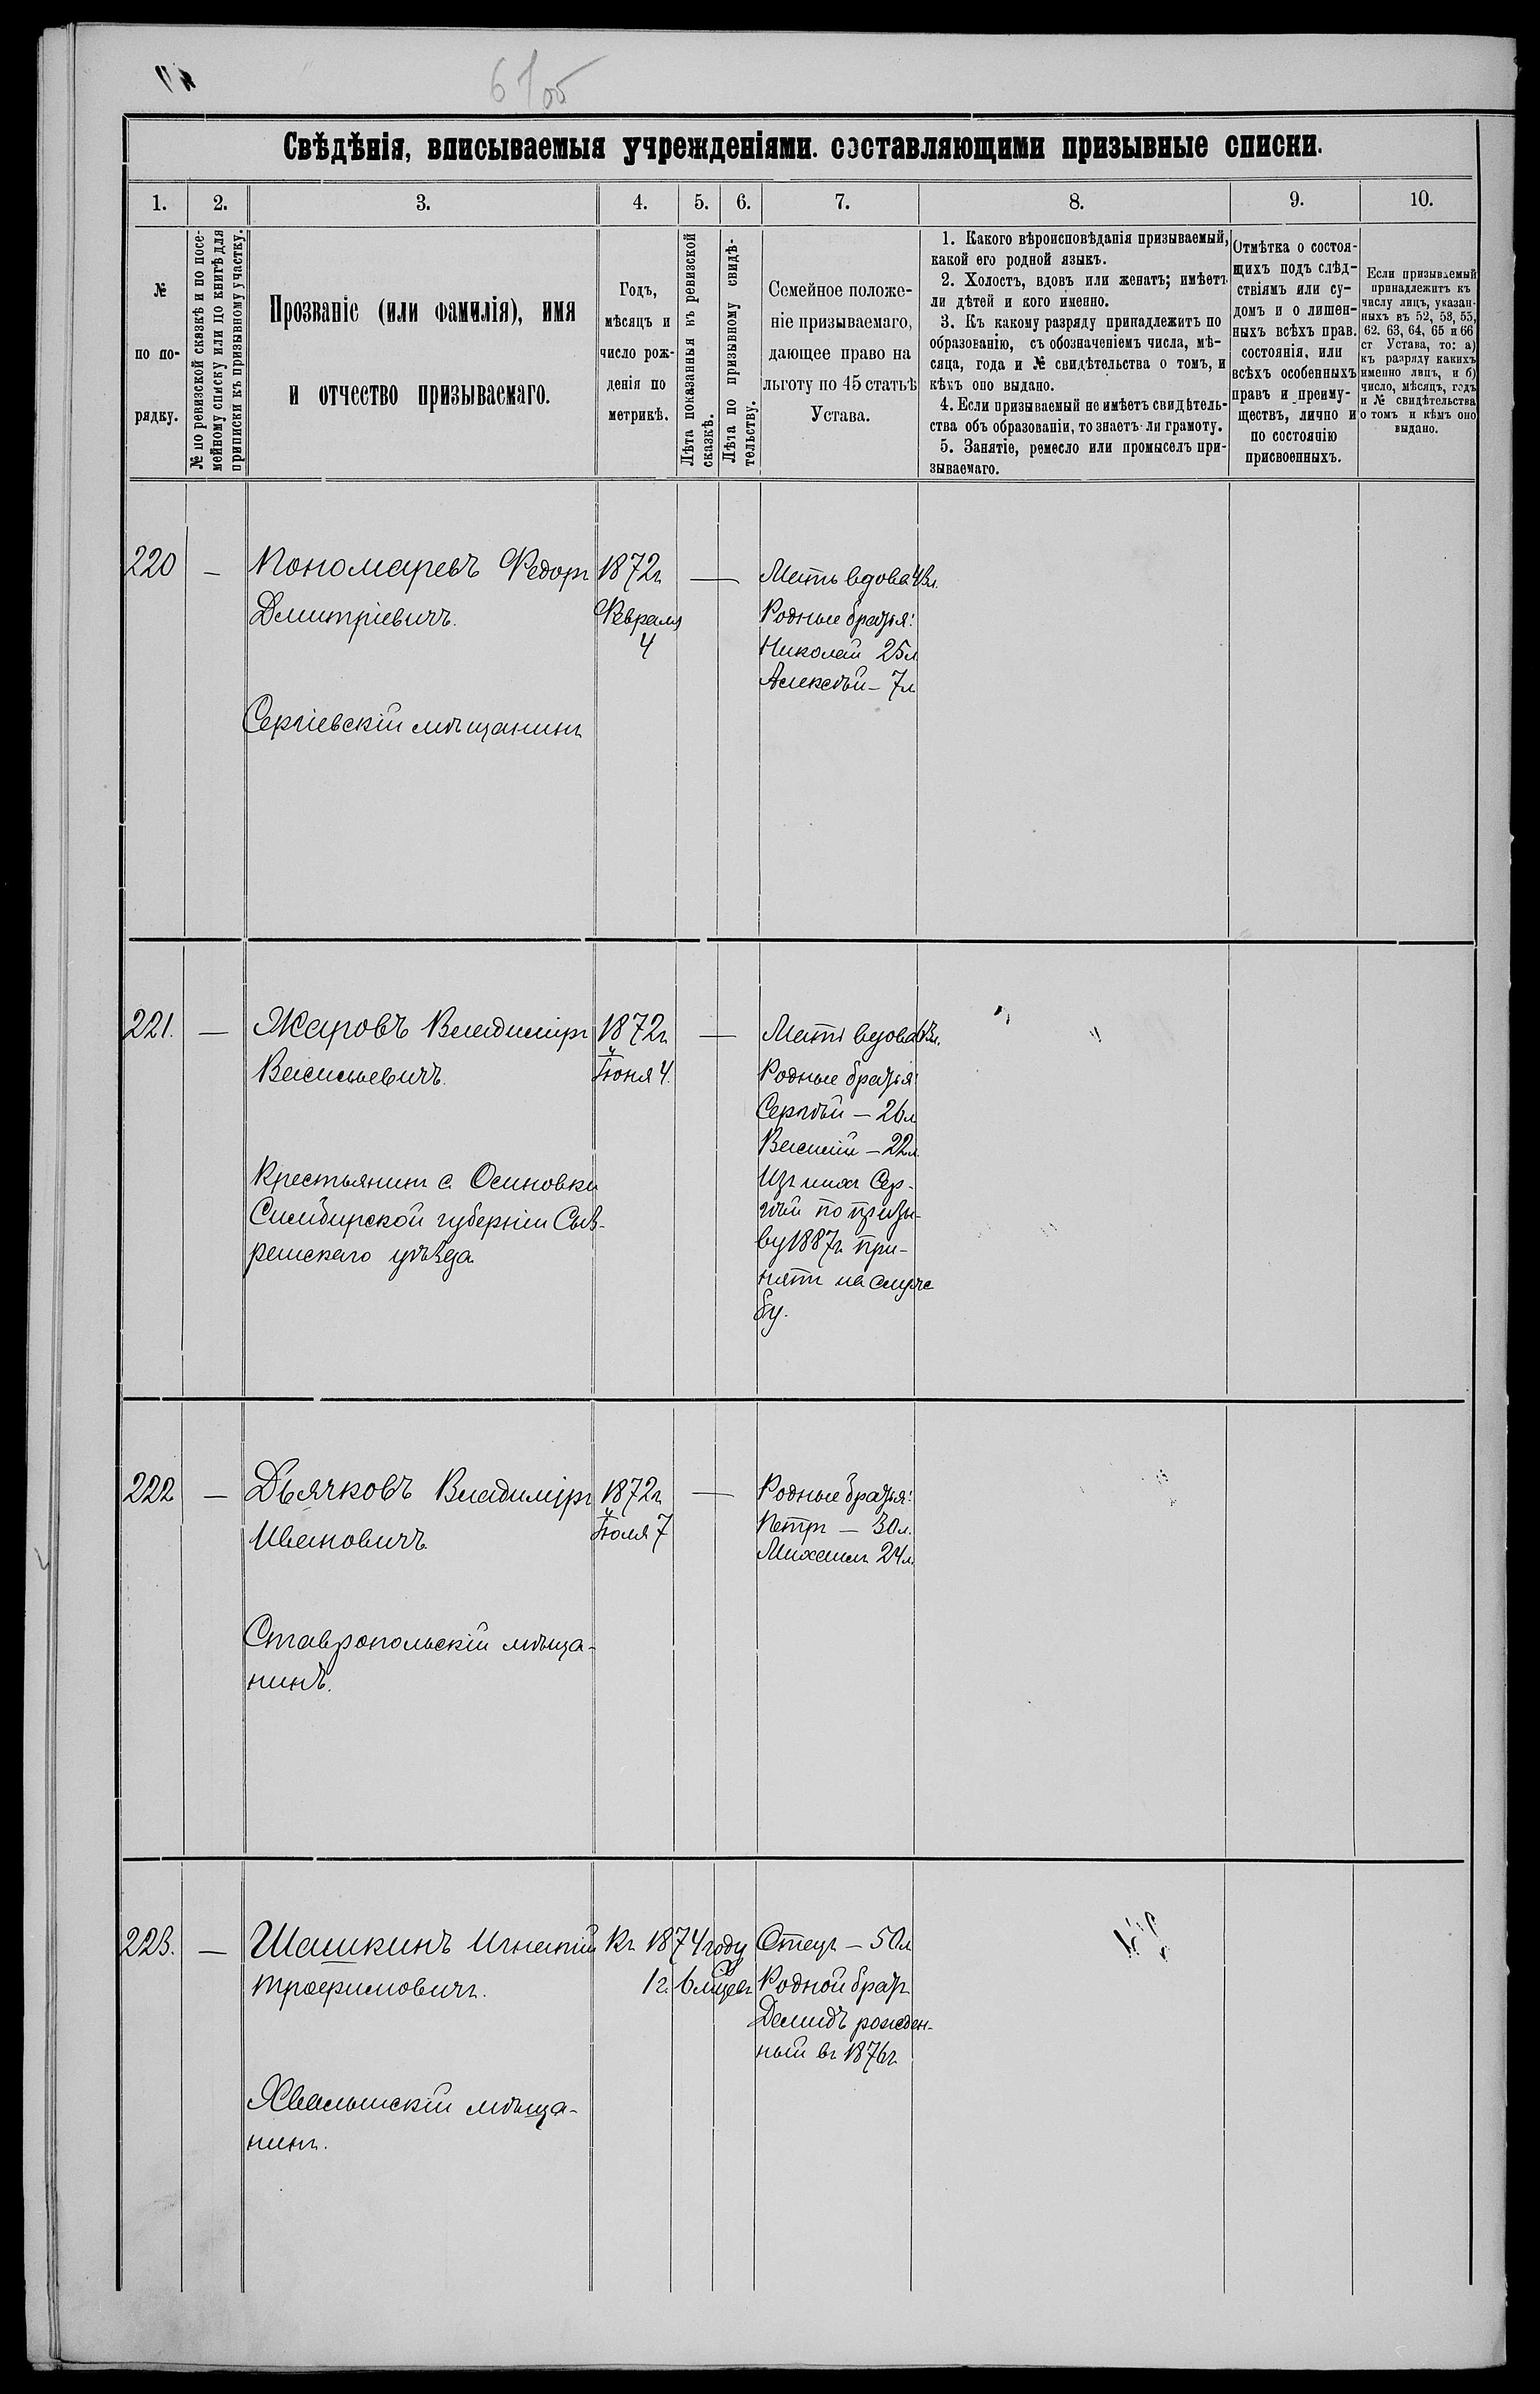 6/об
Свѣдѣнія, вписываемыя учрежденіями. составляющими призывные списки.
1. 2. 3. 4. 5. 6. 7. 8. 9. 10.
№
по по-
рядку.
№ по ревизской сказкѣ и по посе-
мейному списку или по книгѣ для
приписки къ призывному участку.
Прозваніе (или фамилія), имя
и отчество призываемаго.
Годъ,
мѣсяцъ и
число рож-
денія по
метрикѣ.
Лѣта показанныя къ ревизской
сказкѣ.
Лѣта по призывному свидѣ-
тельству.
Семейное положе-
ніе призываемаго,
дающее право на
льготу по 45 статьѣ
Устава.
1. Какого вѣроисповѣданія призываемый,
какой его родной языкъ.
2. Холостъ, вдовъ или женатъ; имѣетъ
ли дѣтей и кого именно.
3. Къ какому разряду принадлежитъ по
образованію, съ обозначеніемъ числа, мѣ-
сяца, года и № свидѣтельства о томъ, и
кѣмъ оно выдано.
4. Если призываемый не имѣетъ свидѣтель-
ства объ образованіи, то знаетъ-ли грамоту.
5. Занятіе, ремесло или промыселъ при-
зываемаго.
Отмѣтка о состоя-
щихъ подъ слѣд-
ствіямъ или су-
домъ и о лишен-
ныхъ всѣхъ прав.
состоянія, или
всѣхъ особенныхъ
правъ и преиму-
ществъ, лично и
по состоянію
присвоенныхъ.
Если призываемый
принадлежитъ къ
числу лицъ, указан-
ныхъ въ 52, 53, 55,
62. 63, 64, 65 и 66
ст Устава, то: а)
къ разряду какихъ
именно лицъ, и б)
число, мѣсяцъ, годъ
и № свидѣтельства
о томъ и кѣмъ оно
выдано.
220 — Пономаревъ Федоръ
Дмитріевичъ.
Сергіевскій мѣщанинъ
1872г.
Февраля
4
—
Мать вдова 43л.
Родные братья:
Николай 25л
Алексѣй – 7л
221. — Жаровъ Владиміръ
Васильевичъ.
Крестьянинъ с. Осиновки
Симбирской губерніи Сыз-
ранскаго уѣзда
1872г.
Іюня 4.
—
Мать вдова 63л.
Родные братья:
Сергѣй – 26л
Василій – 22л.
Изъ нихъ Сер-
гѣй по призы-
ву 1887г. при-
нятъ на служ
бу.
222 — Дьячковъ Владиміръ
Ивановичъ
Ставропольскій мѣща-
нинъ.
1872г.
Іюля 7
—
Родные братья:
Петръ — 30л.
Михаилъ 24л.
223. — Шашкинъ Игнатій
Трофимовичъ.
Хвалынскій мѣща-
нинъ.
Къ 1874 году
1г. 6 мѣсец.
Отецъ – 50л
Родной братъ
Демидъ рожден-
ный въ 1876г.